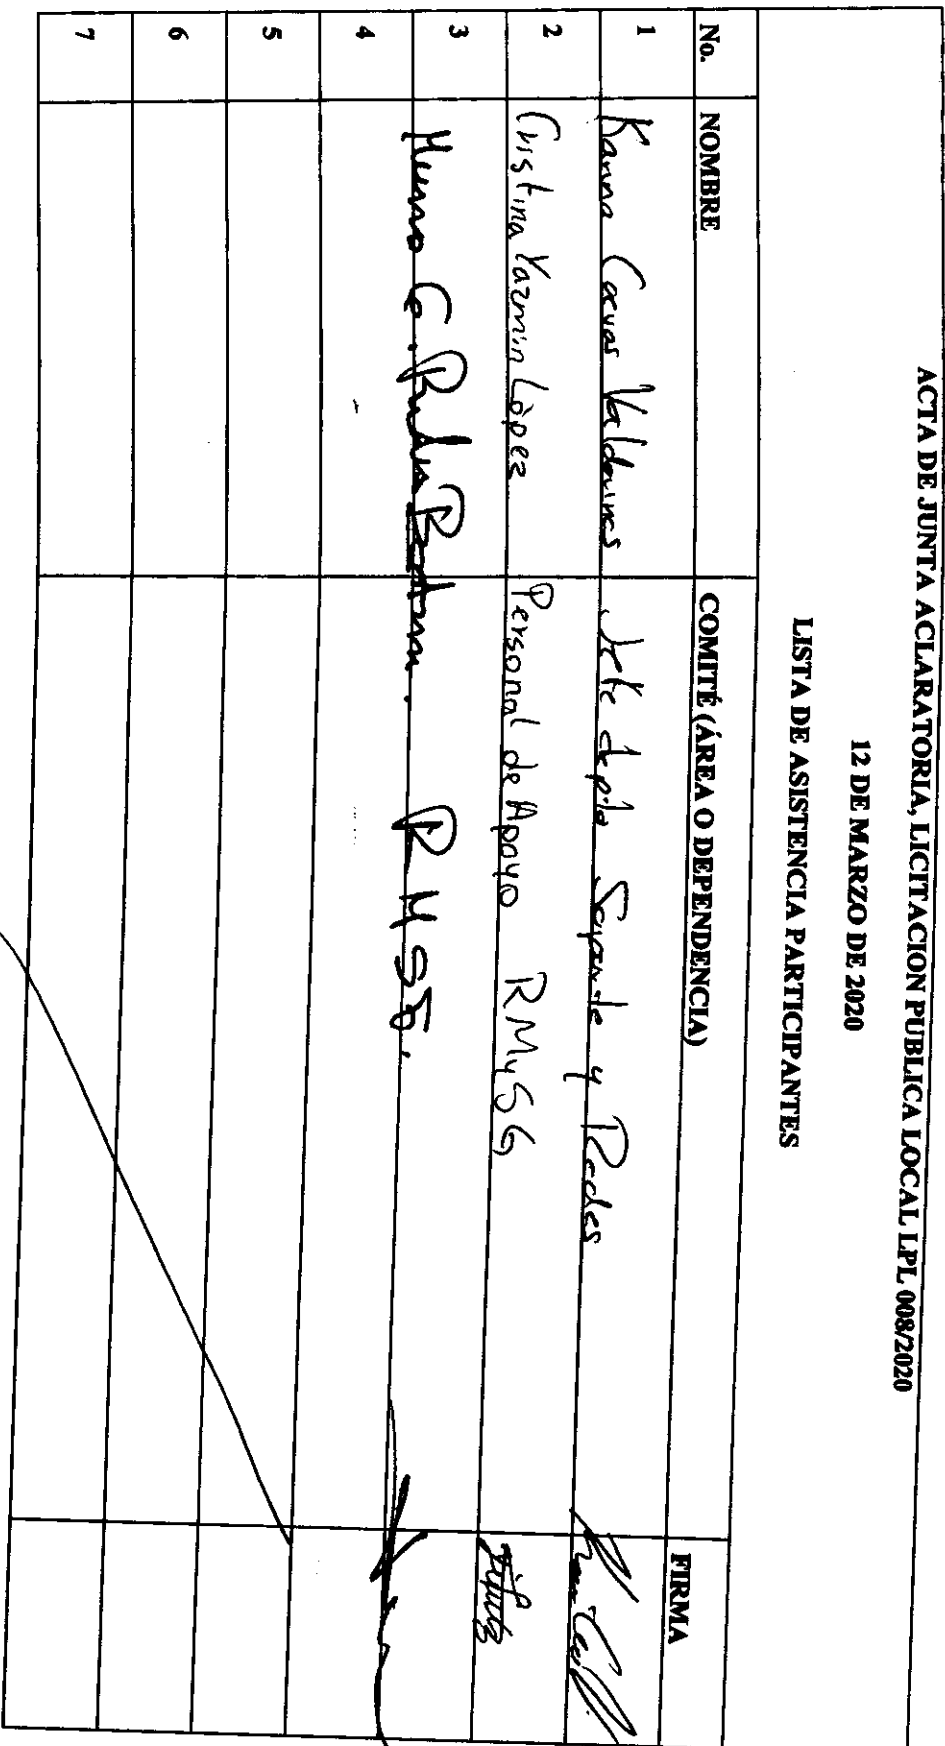 ACTA DE JUNTA ACLARATORIA, LICITACION PUBLICA LOCAL LPL 008/2020
12 DE MARZO DE 2020
LISTA DE ASISTENCIA PARTICIPANTES
No. NOMBRE COMITÉ (ÁREA O DEPENDENCIA) FIRMA
1 Karina Cuevas Jefe Soporte y Redes
2 Cristina Yazmin López Personal de Apoyo RMySG
3 C.
4
5
6
7